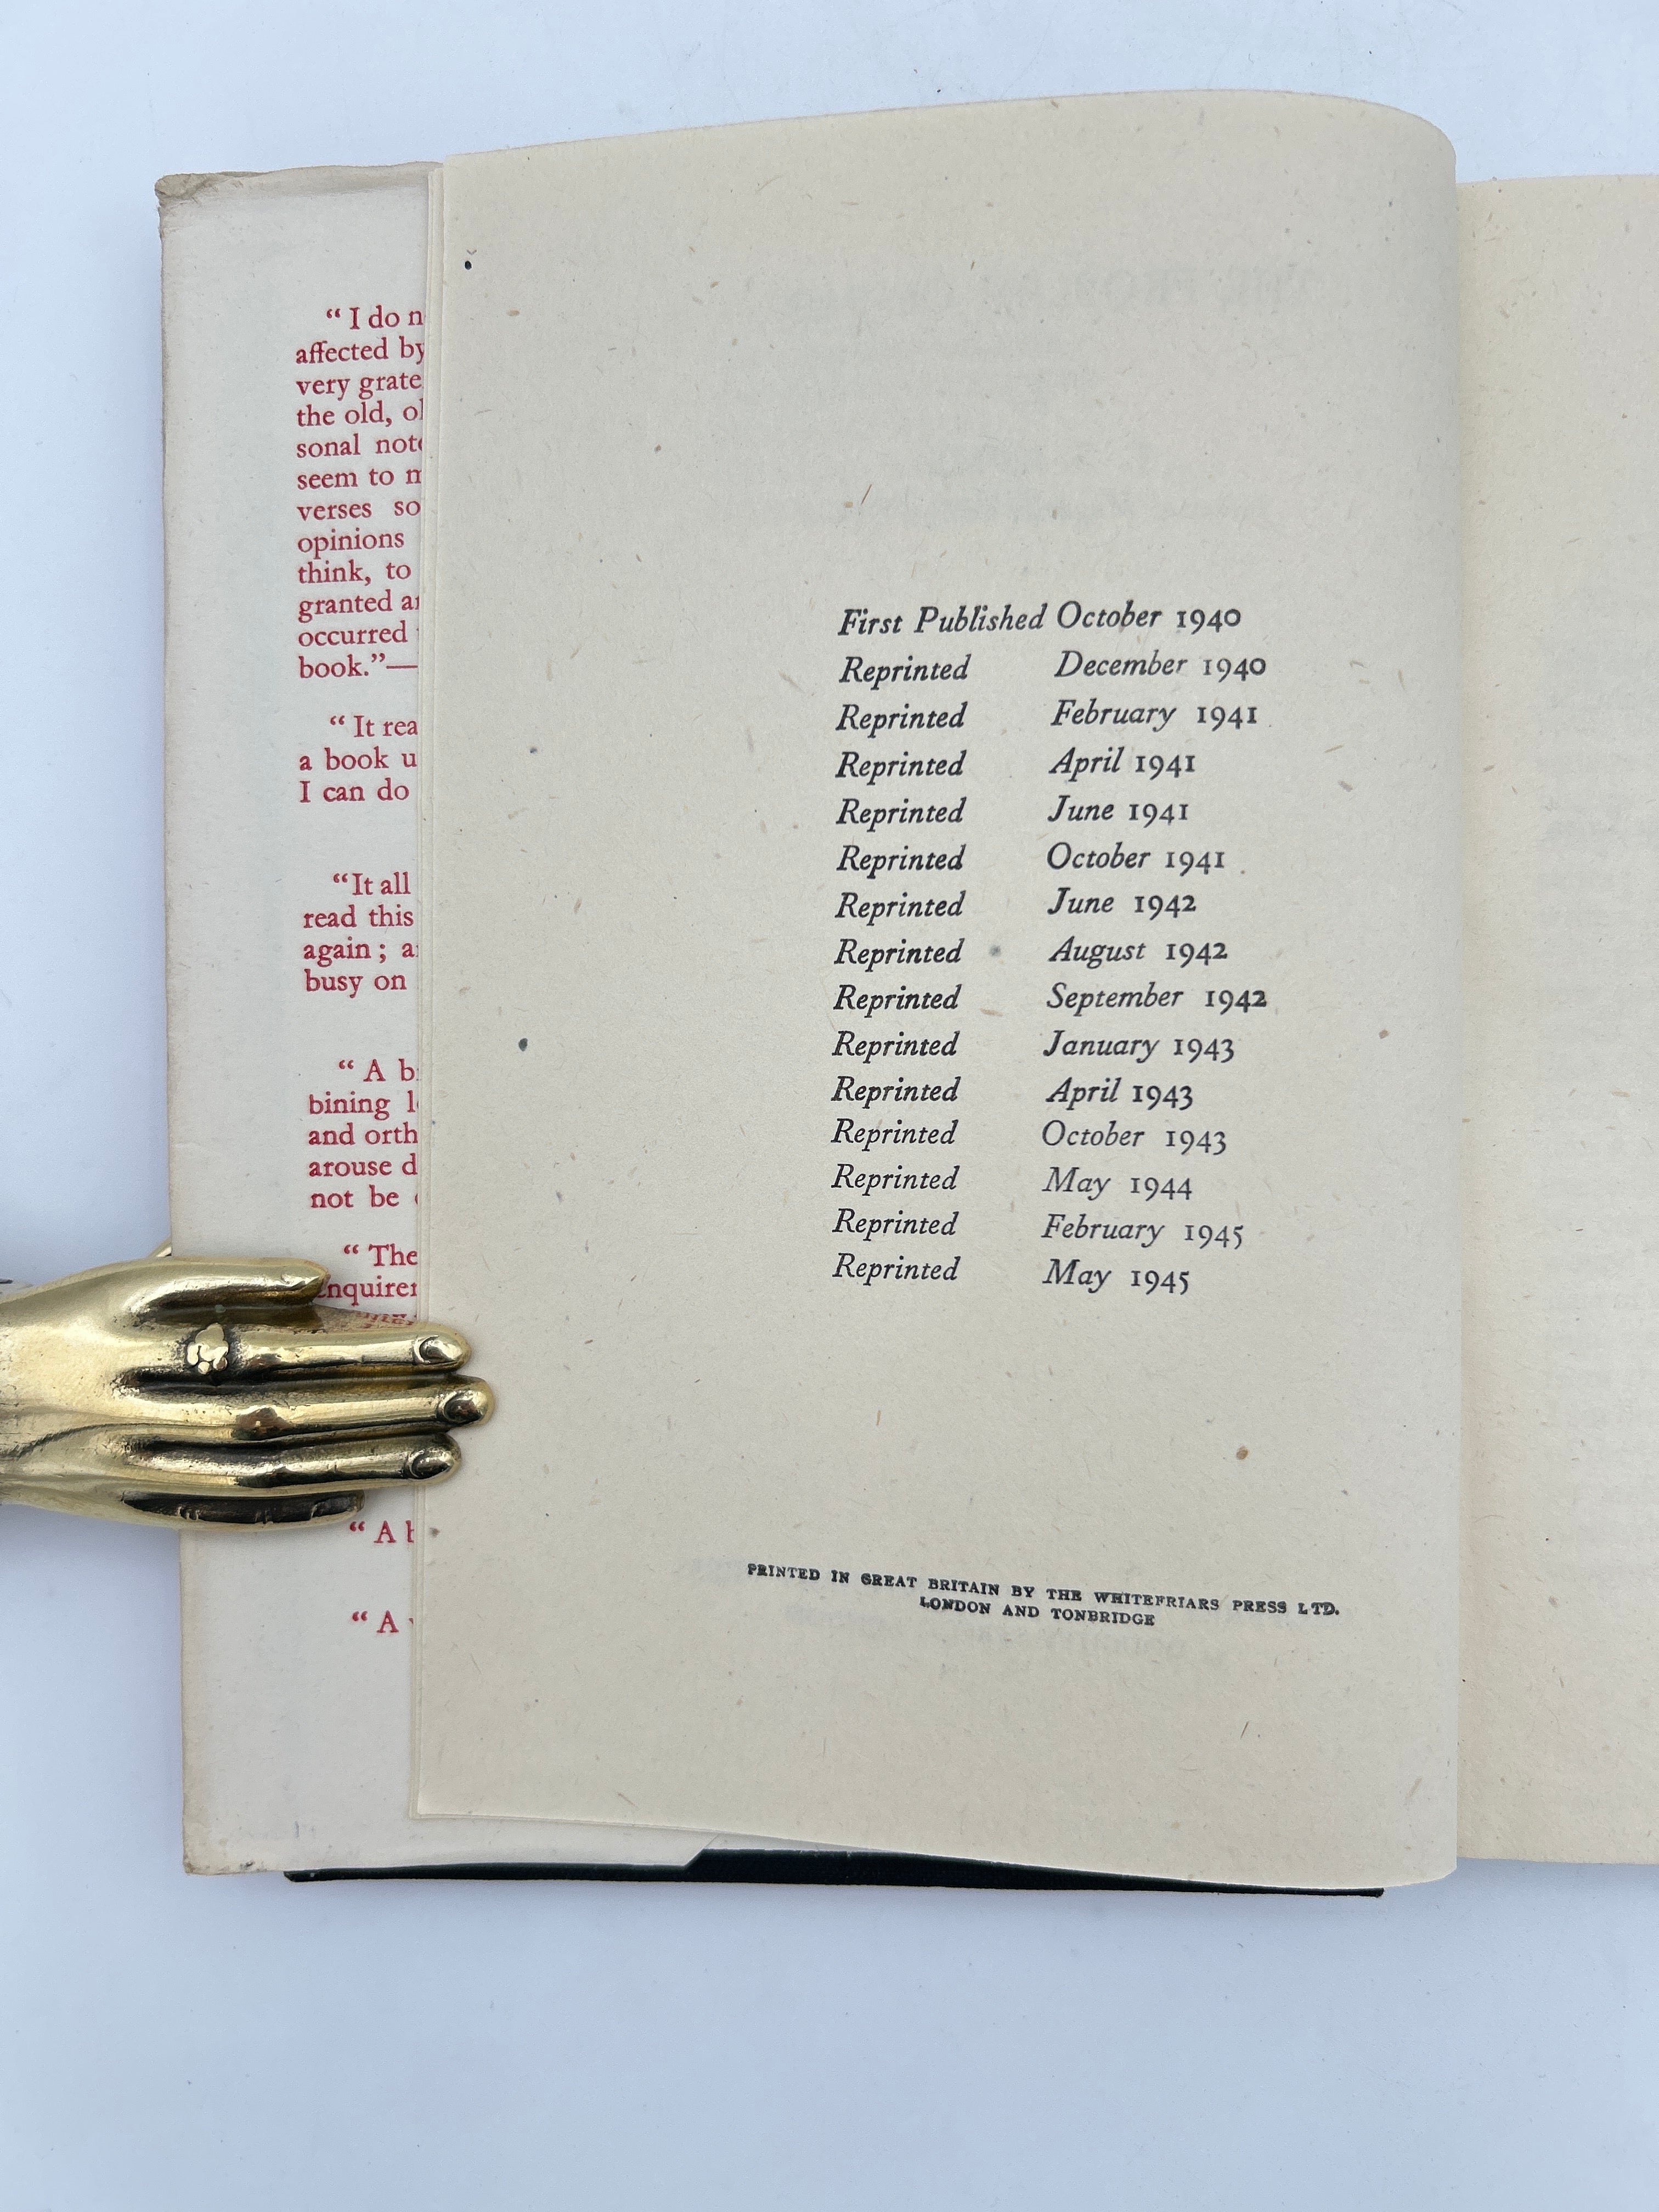 “ I do
affected by
very
the old,
sonal
seem to
verses so
opinions
think, to
granted
occurred
book.”—
“ It
a book
I can do
“It all
read this
again ;
busy on
“ A
bining
and
arouse
not be
“ The
“ A
“ A
First Published October 1940
Reprinted December 1940
Reprinted February 1941
Reprinted April 1941
Reprinted June 1941
Reprinted October 1941
Reprinted June 1942
Reprinted August 1942
Reprinted September 1942
Reprinted January 1943
Reprinted April 1943
Reprinted October 1943
Reprinted May 1944
Reprinted February 1945
Reprinted May 1945
PRINTED IN GREAT BRITAIN BY THE WHITEFRIARS PRESS LTD.
LONDON AND TONBRIDGE